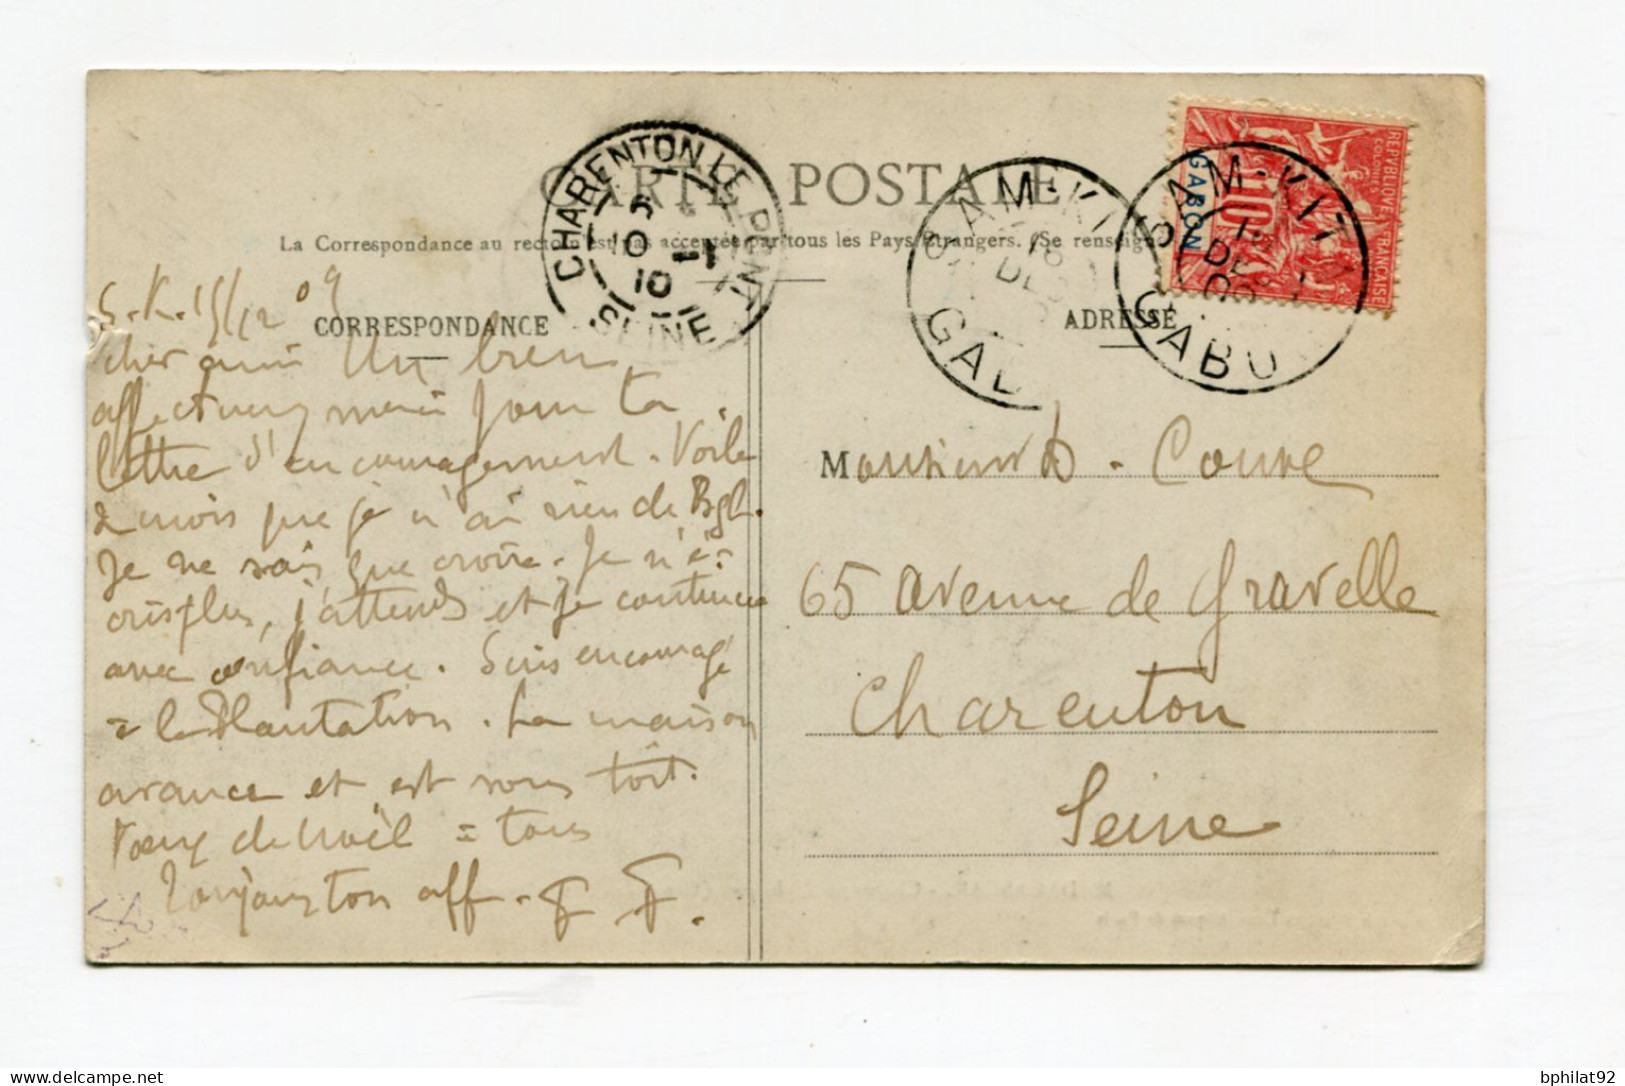 CARTE POSTALE
La Correspondance au recto n'est pas acceptée par tous les Pays Etrangers. (Se renseigner
CORRESPONDANCE
ADRESSE
CHARENTON LE PONT
10 -1
10
SEINE
SAM-KIT
18
DE
GAB
SAM-KIT
DE
GABO
REPVBLIQVE FRANÇAISE
COLONIES
GABON
10
S.K. 15/12 09
cher ami Un bien
affectueux merci pour ta
lettre d'encouragement. Voilà
2 mois que je n'ai rien de Bgh.
Je ne sais que croire. Je n'é=
cris plus, j'attends et je continue
avec confiance. Suis encouragé
= la Plantation. La maison
avance et est sous toit.
Voeux de Noël = tous
Toujours ton aff.
Monsieur D. Couve
65 avenue de Gravelle
Charenton
Seine
bphilat92